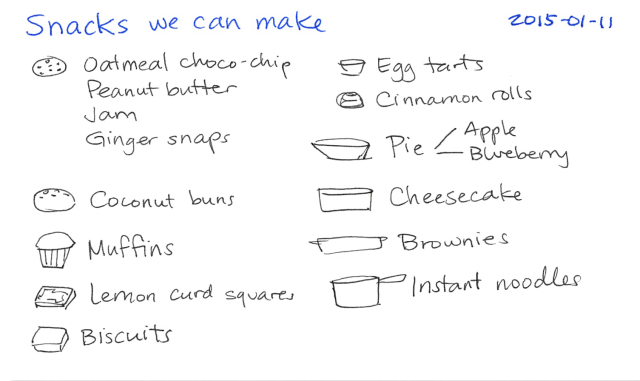 Snacks we can make
2015-01-11
Oatmeal choco-chip
Peanut butter
Jam
Ginger snaps
Coconut buns
Muffins
Lemon curd squares
Biscuits
Egg tarts
Cinnamon rolls
Pie
Apple
Blueberry
Cheesecake
Brownies
Instant noodles